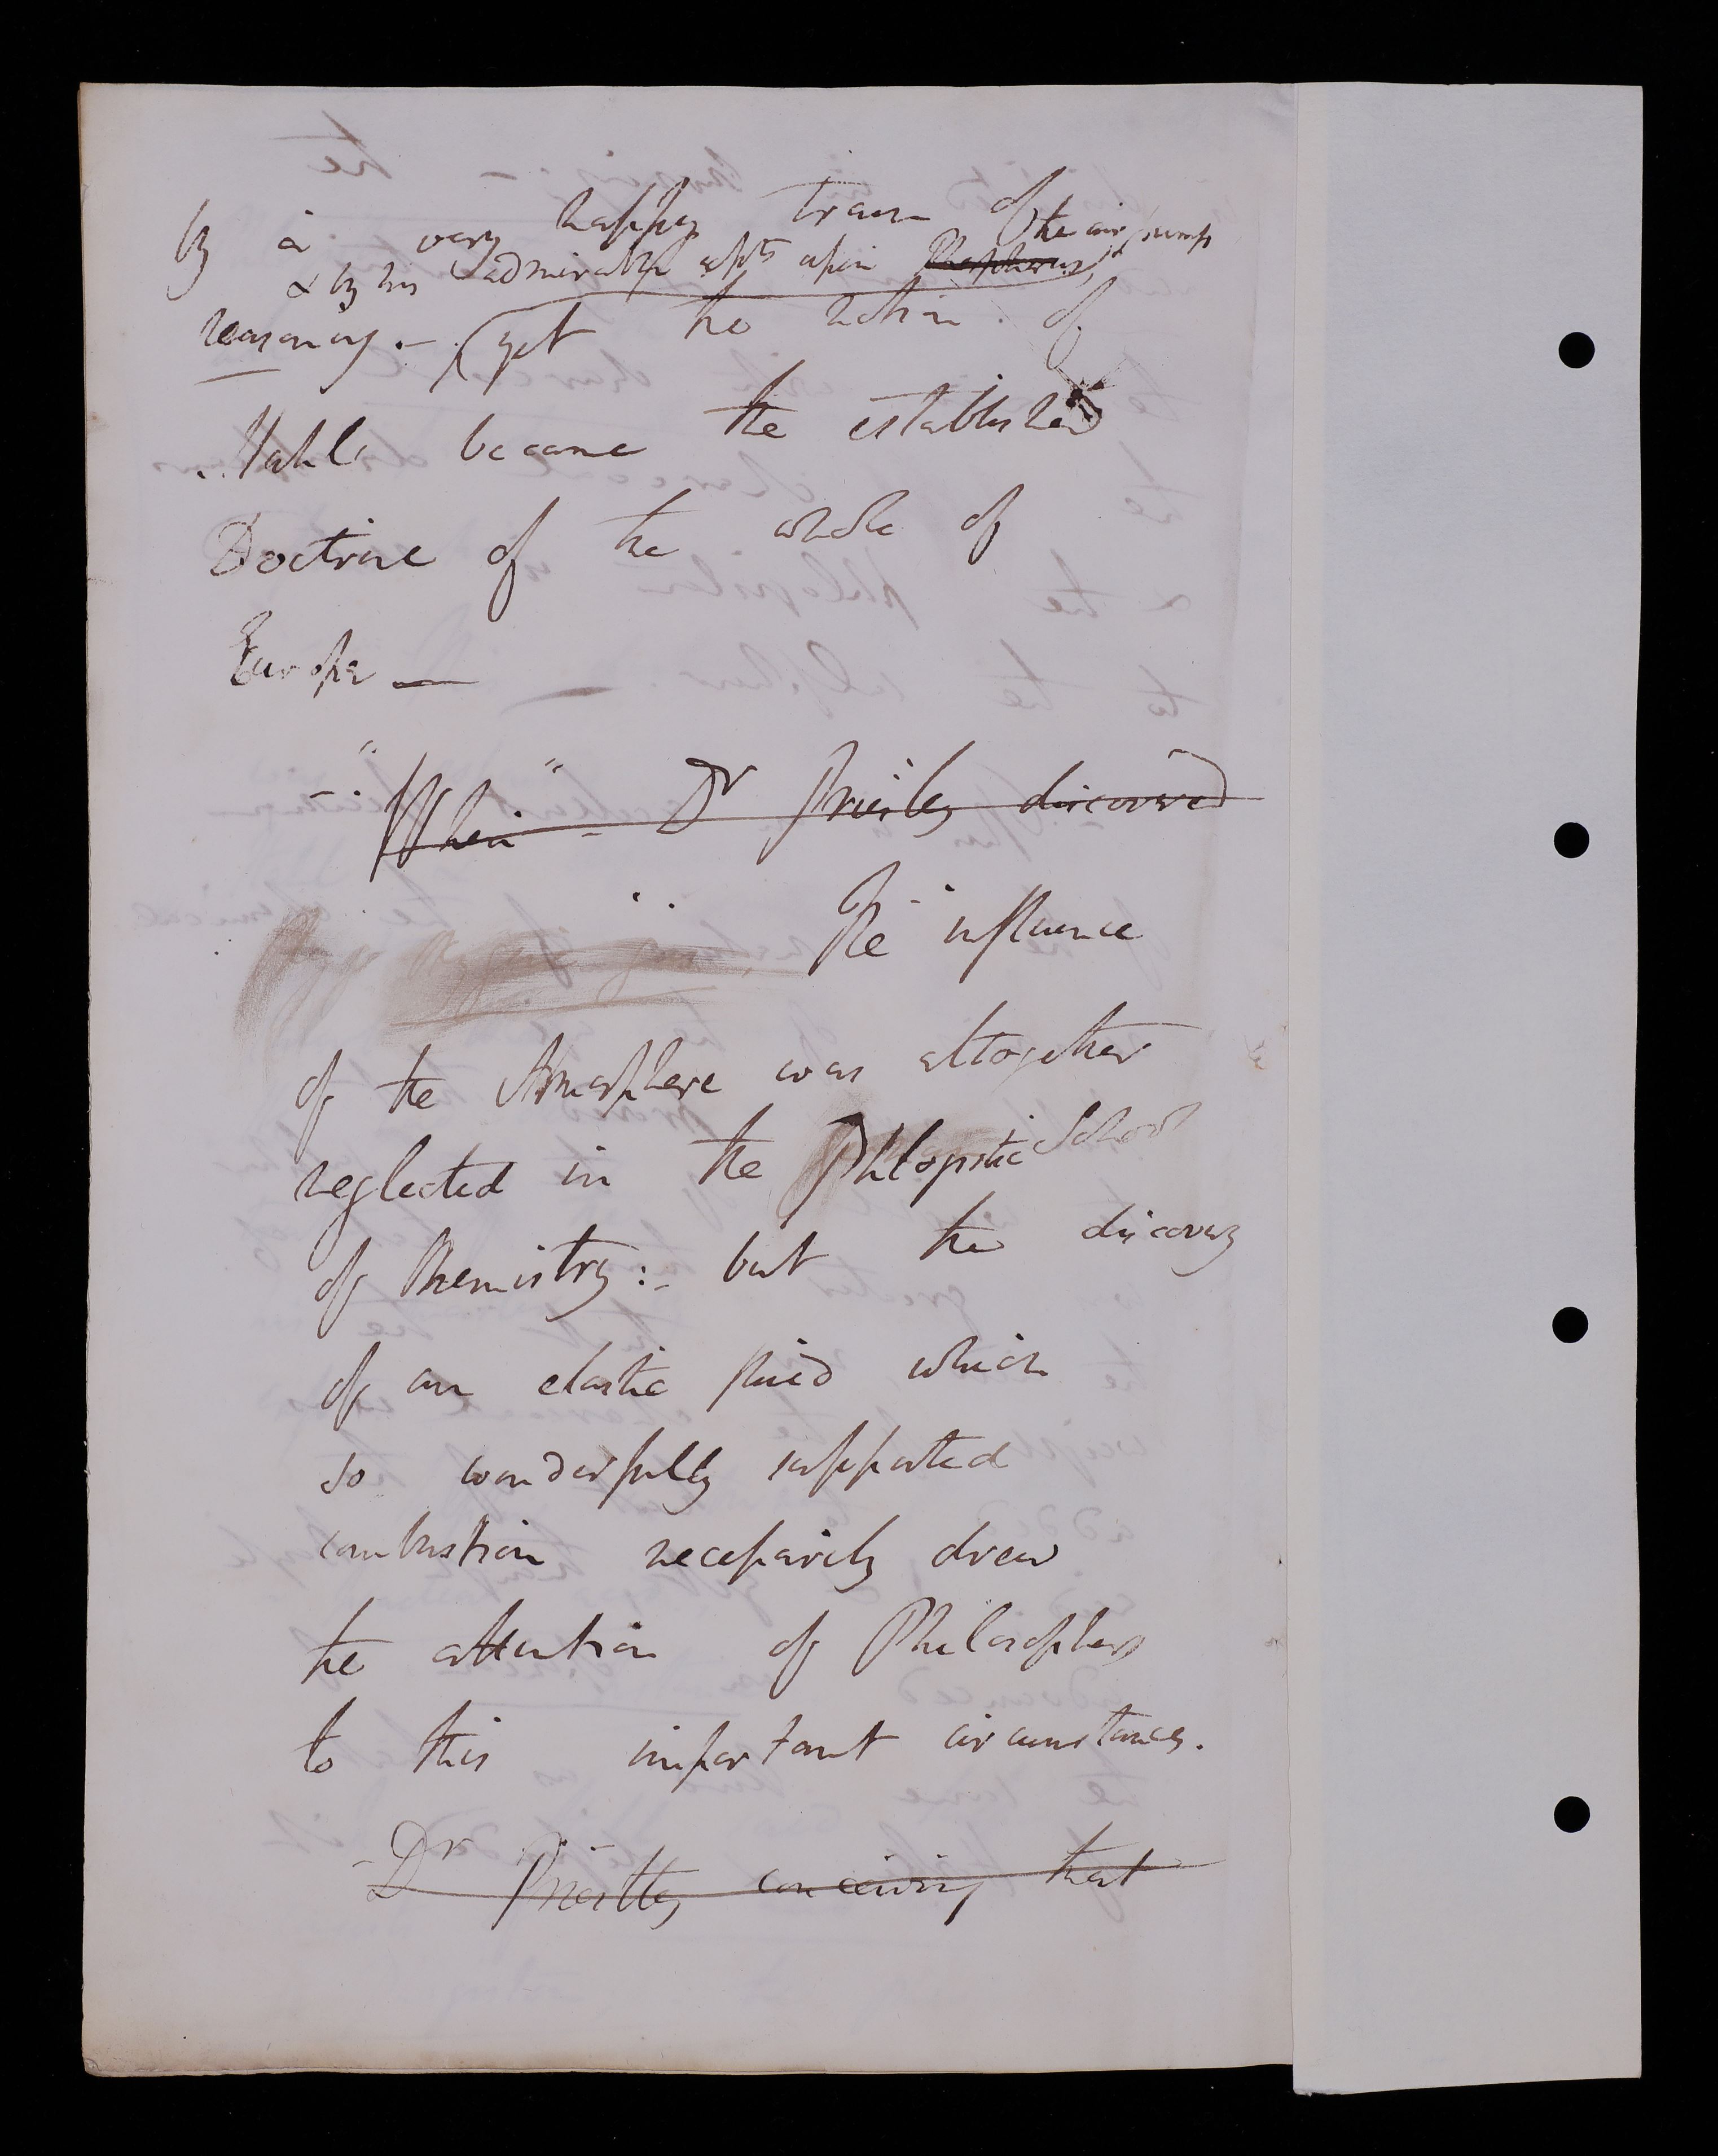 by a very happy train of
& by his admirable expts upon Phosphorus the air pump
reasoning. – yet the notion of
Stahl became the established
Doctrine of the whole of
Europe —
"When" – Dr Priestley discovered
The influence
of the Atmosphere was altogether
neglected in the Phlogistic School
of Chemistry:- but the discovery
of an elastic fluid which
so wonderfully supported
combustion necessarily drew
the attention of Philosophers
to this important circumstance.
– Dr Priestley conceiving that